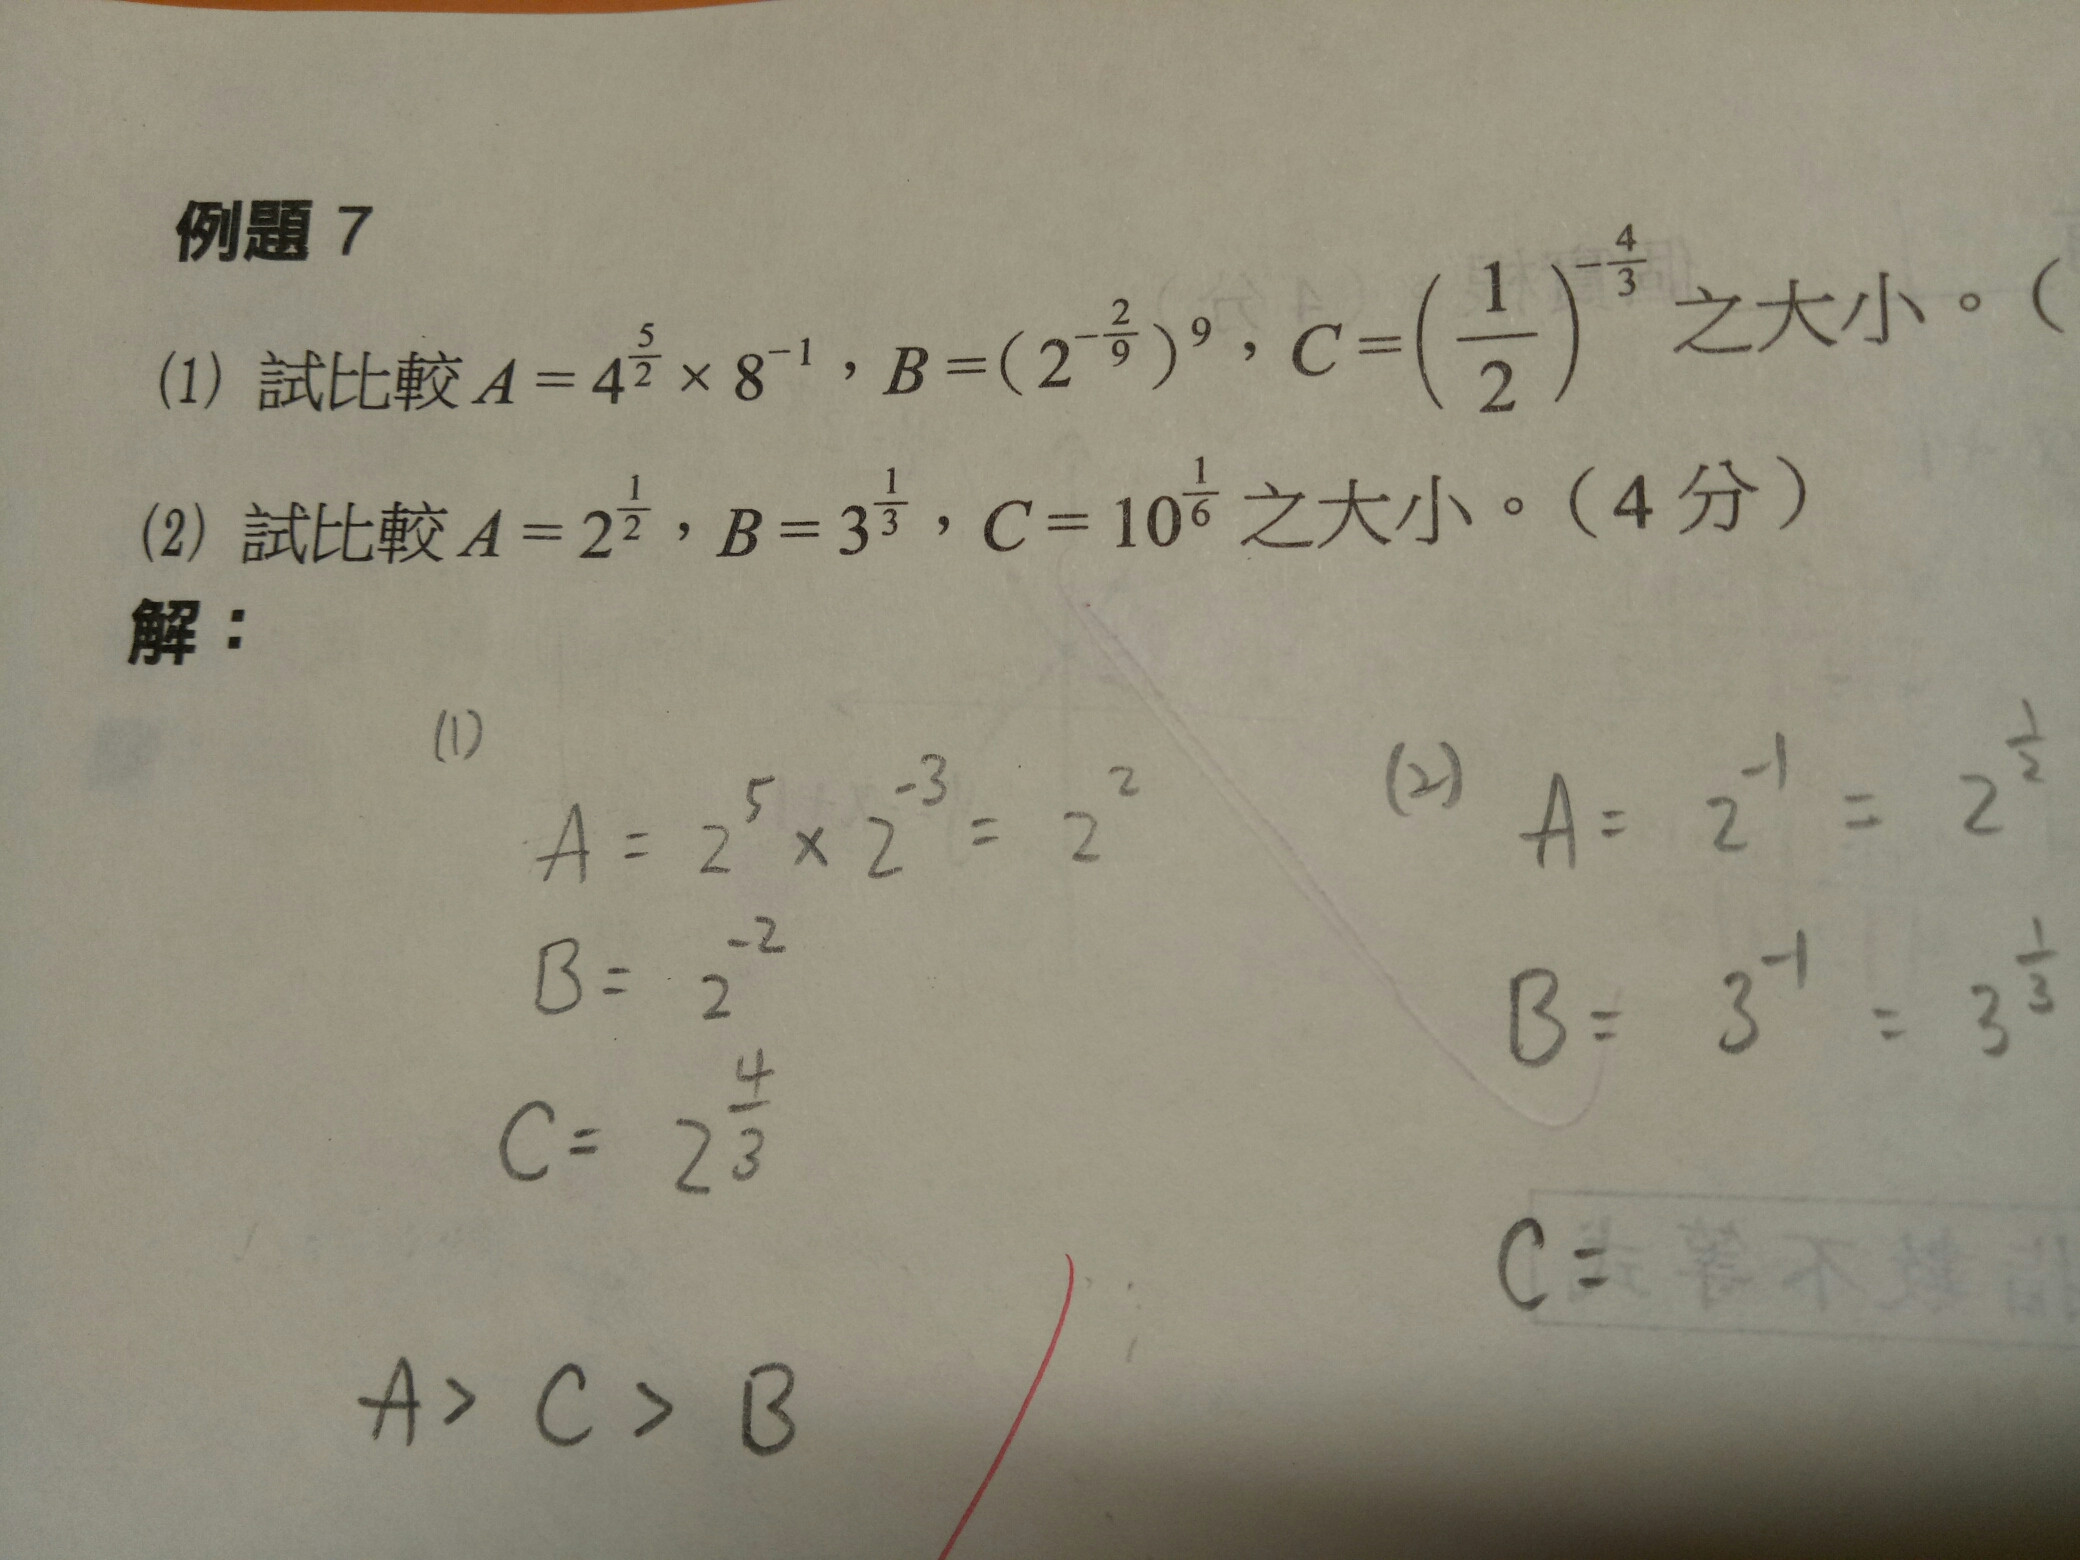 例題 7
(1) 試比較 A = 4^{5/2} × 8^{-1}，B = (2^{-2/9})^9，C = (1/2)^{-4/3} 之大小。(
(2) 試比較 A = 2^{1/2}，B = 3^{1/3}，C = 10^{1/6} 之大小。(4 分)
解：
(1)
A = 2^5 × 2^{-3} = 2^2
B = 2^{-2}
C = 2^{4/3}
A > C > B
(2) A = 2^{-1} = 2^{1/2}
B = 3^{-1} = 3^{1/3}
C =